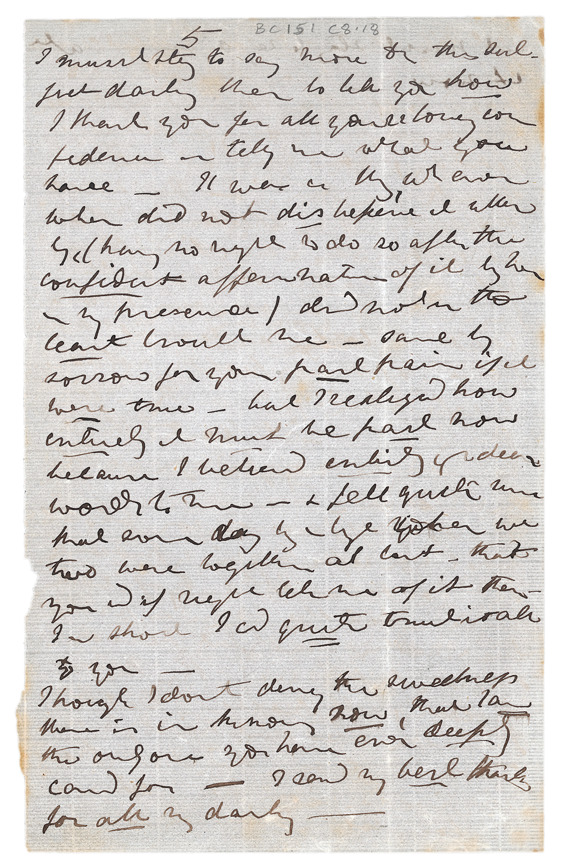 BC151 C8:18
5
I must stay to say more on this sub-
ject darling than to tell you how
I thank you for all your loving con
fidence in telling me what you
have — It was a thing wh even
when did not disbelieve it utter
ly (having no right to do so after the
confident affirmation of it by her
in my presence) did not in the
least trouble me — save by
sorrow for your past pain if it
were true — but I realized how
entirely it must be past now
because I believed entirely yr dear
words to me — & felt quite sure
that some day by & bye when we
two were together at last — that
you wd if right tell me of it then —
In short I cd quite trust
to you —
Though I don't deny the sweetness
there is in knowing now, that I am
the only one you have ever deeply
cared for — I send my best thanks
for all my darling —